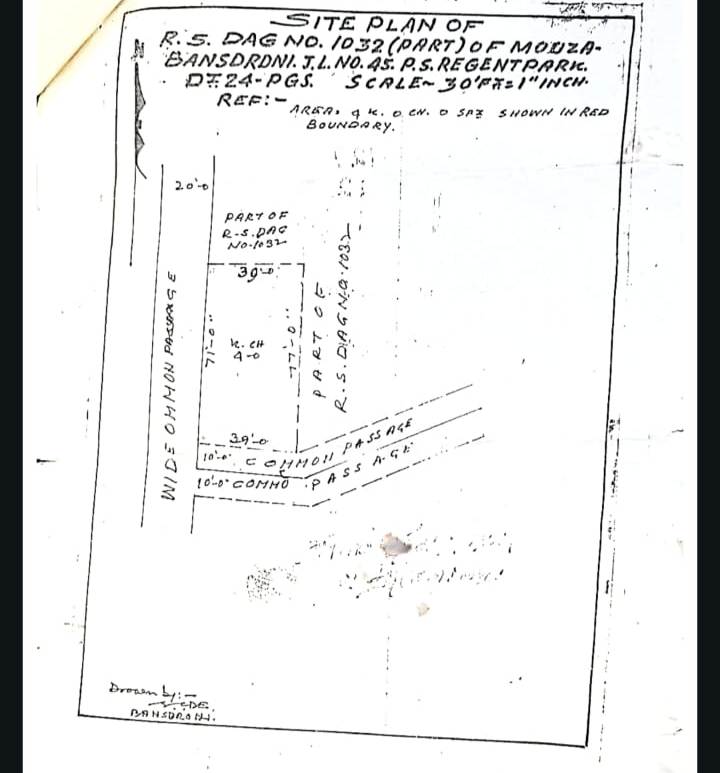 SITE PLAN OF
R.S. DAG NO. 1032 (PART) OF MOUZA-
BANSDRONI. J.L. NO. 45. P.S. REGENT PARK.
DT. 24-PGS. SCALE~ 30'FT=1"INCH.
REF:-
AREA: 4 K. 0 CH. 0 SFT SHOWN IN RED
BOUNDARY.
N
20'-0
PART OF
R-S.DAG
NO-1032
39'-0
WIDE OMMON PASSAGE
71'-0"
K. CH
4-0
77'-0"
PART OF
R.S. DAG NO. 1032
39'-0
10'-0" COMMON PASSAGE
10'-0" COMMO PASSAGE
Drawn by:-
DE.
BANSDRONI.